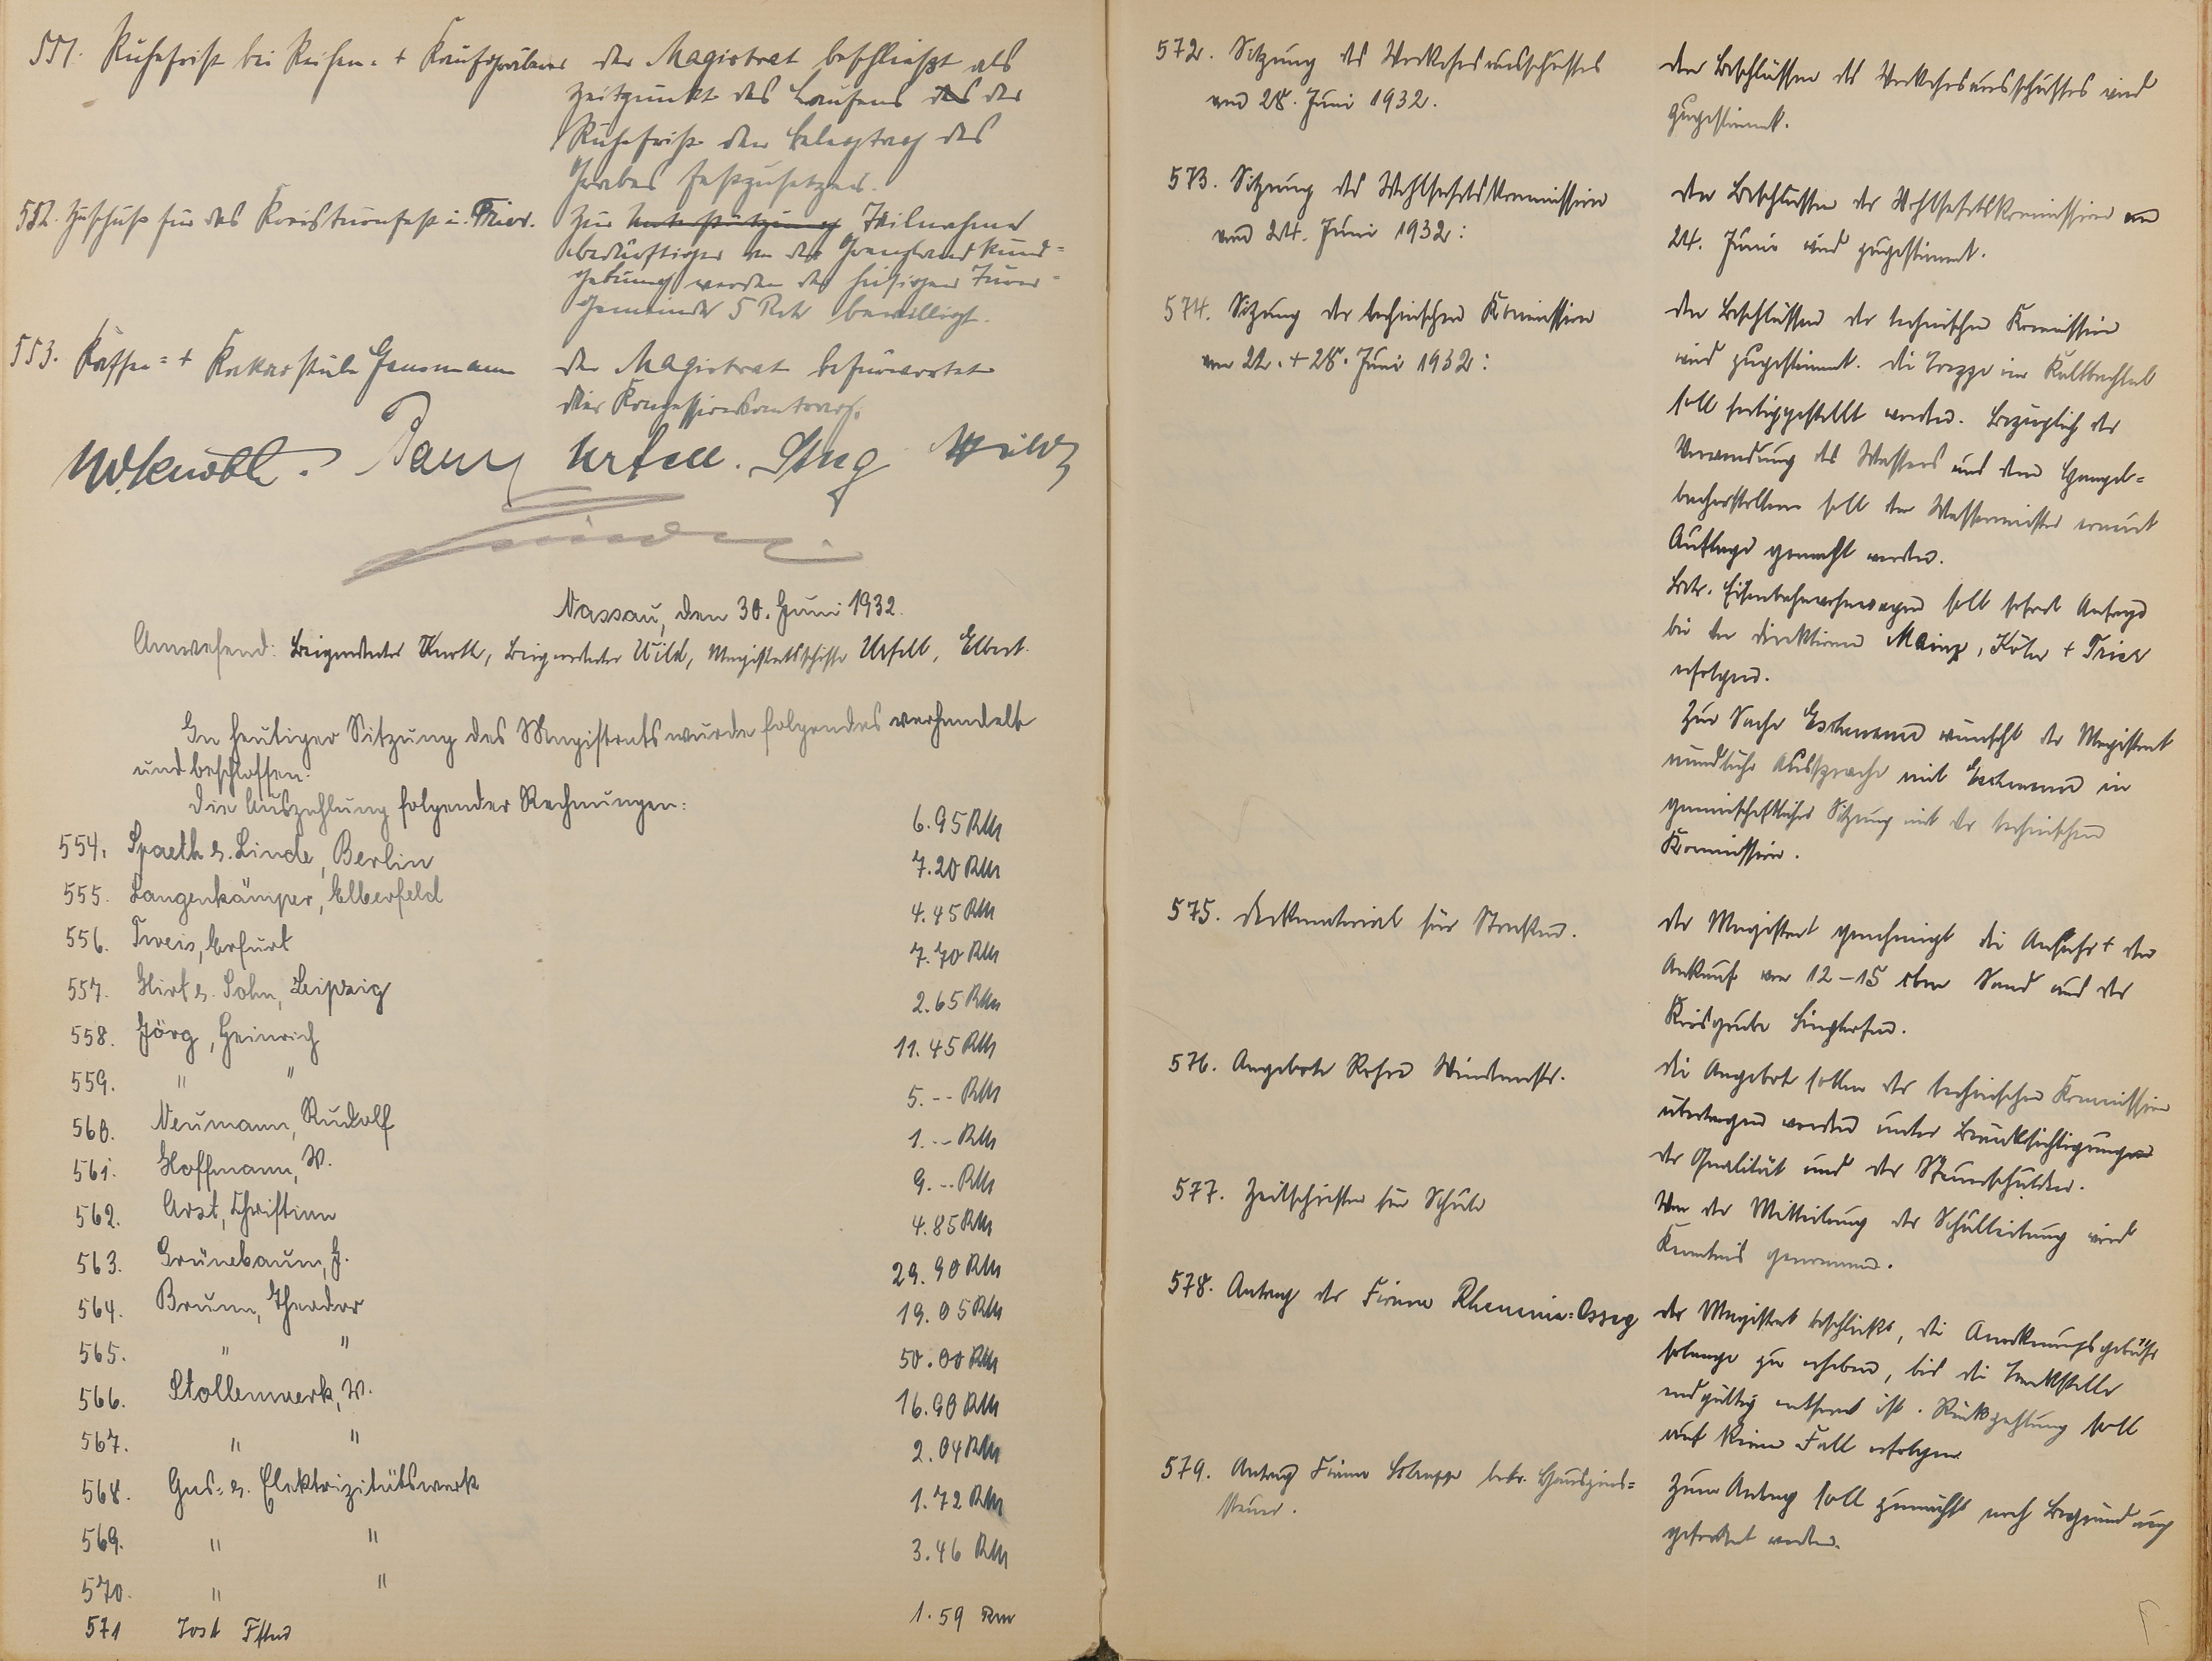 551. Ruhefrist bei Reihen- + Kaufgräbern
der Magistrat beschließt als
Zeitpunkt des Laufens des der
Ruhefrist den Belegtag des
Grabes festzusetzen.
552. Zuschuß für das Kreisturnfest i. Trier.
Zur Unterstützung Teilnahme
bedürftiger an der Grenzlandkund=
gebung werden der hiesigen Turn=
gemeinde 5 RM bewilligt.
553. Kaffee= + Kakaostube Gensmann
der Magistrat befürwortet
den Konzessionsantrag.
Urfell.
Wild
Nassau, den 30. Juni 1932.
Anwesend: Beigeordneter Kurth, Beigeordneter Wild, Magistratsschöffe Urfell, Elbert.
In heutiger Sitzung des Magistrats wurde folgendes verhandelt
und beschlossen:
Die Auszahlung folgender Rechnungen:
554. Spaeth u. Linde, Berlin 6.95 RM
555. Langenkämper, Elberfeld 7.20 RM
556. Treis, Erfurt 4.45 RM
557. Hirt u. Sohn, Leipzig 7.70 RM
558. Jörg, Heinrich 2.65 RM
559. " " 11.45 RM
560. Neumann, Rudolf 5.-- RM
561. Hoffmann, W. 1.-- RM
562. Arzt, Christian 9.-- RM
563. Grünebaum, J. 4.85 RM
564. Brunn, Theodor 29.90 RM
565. " " 19.05 RM
566. Stollenwerk, W. 50.00 RM
567. " " 16.90 RM
568. Gas- u. Elektrizitätswerk 2.04 RM
569. " " 1.72 RM
570. " " 3.46 RM
571 Jost 1.59 RM
572. Sitzung des Verkehrsausschusses
vom 28. Juni 1932.
Den Beschlüssen des Verkehrsausschusses wird
zugestimmt.
573. Sitzung der Wohlfahrtskommission
vom 24. Juni 1932:
Den Beschlüssen der Wohlfahrtskommission vom
24. Juni wird zugestimmt.
574. Sitzung der technischen Kommission
vom 22. + 28. Juni 1932:
Den Beschlüssen der technischen Kommission
wird zugestimmt. Die Treppe im Kaltbachtal
soll fertiggestellt werden. Bezüglich der
Verwendung des Wassers aus den
soll dem Wassermeister erneut
Auflage gemacht werden.
Betr. Eisenbahnwohnwagen soll sofort Anfrage
bei den Direktionen Mainz, Köln + Trier
erfolgen.
Zur Sache Eschmann wünscht der Magistrat
mündliche Aussprache mit Eschmann in
gemeinschaftlicher Sitzung mit der technischen
Kommission.
575. Deckmaterial für Straßen.
Der Magistrat genehmigt die Anfuhr + den
Ankauf von 12-15 cbm Sand aus der
Kiesgrube Singhofen.
576. Angebote Rohre Windenerstr.
Die Angebote sollen der technischen Kommission
übertragen werden unter Berücksichtigung
der Qualität und der Steuerschulden.
577. Zeitschriften für Schule
Von der Mitteilung der Schulleitung wird
Kenntnis genommen.
578. Antrag der Firma Rhenania=Ossag
Der Magistrat beschließt, die Anerkennungsgebühr
solange zu erheben, bis die Tankstelle
endgültig entfernt ist. Rückzahlung soll
auf keinen Fall erfolgen.
579. Antrag Firma betr. Hauszins=
steuer.
Zum Antrag soll zunächst noch Begründung
gefordert werden.